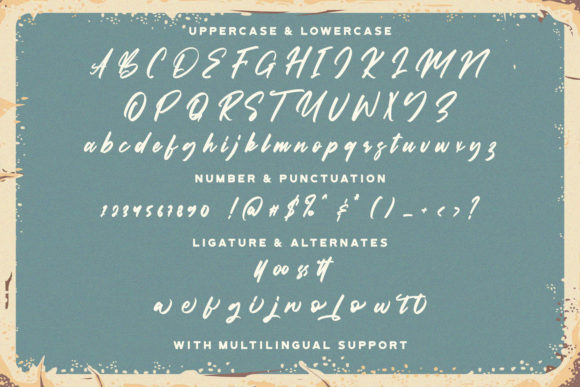 UPPERCASE & LOWERCASE
ABCDEFGHIJKLMN
OPQRSTUVWXYZ
abcdefghijklmnopqrstuvwxyz
NUMBER & PUNCTUATION
1234567890 !@#$%^&*()_-+<>?
LIGATURE & ALTERNATES
ll oo ss tt
WITH MULTILINGUAL SUPPORT